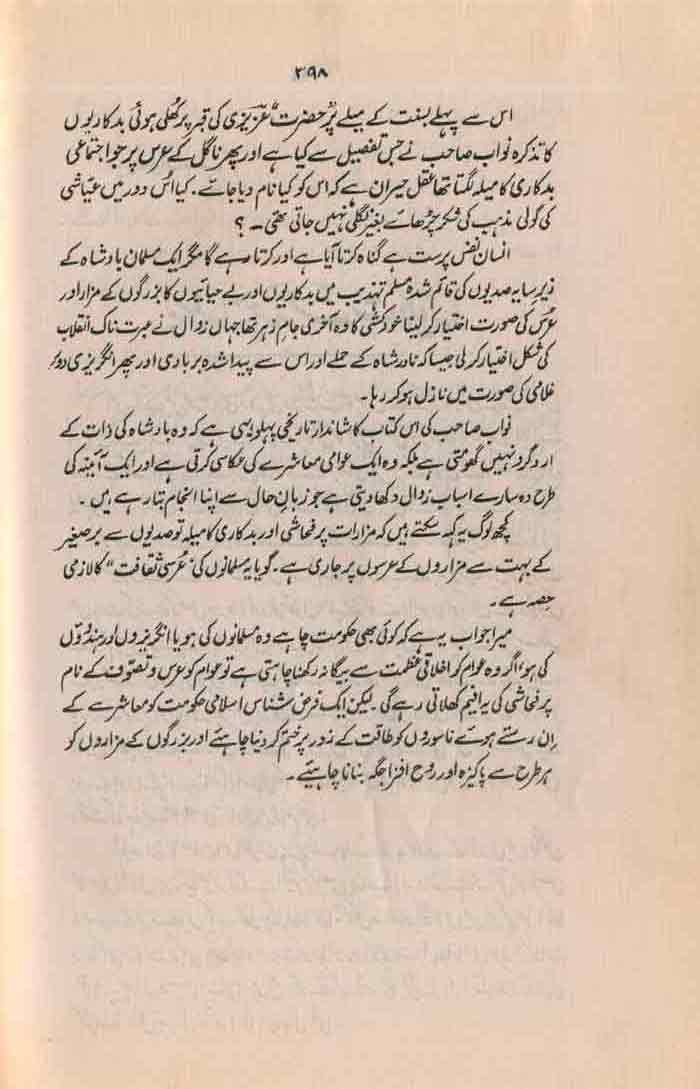 ۳۹۸
اس سے پہلے بسنت کے میلے پر حضرت عزیزیؒ کی قبر پر کھلی ہوئی بدکاریوں
کا تذکرہ نواب صاحب نے جس تفصیل سے کیا ہے اور پھر ناگل کے عرس پر جو اجتماعی
بدکاری کا میلہ لگتا تھا عقل حیران ہے کہ اس کو کیا نام دیا جائے۔ کیا اس دور میں عیّاشی
کی گولی مذہب کی شکر چڑھائے بغیر نگلی نہیں جاتی تھی۔ ؟
انسان نفس پرست ہے گناہ کرتا آیا ہے اور کرتا رہے گا مگر ایک مسلمان بادشاہ کے
زیرِ سایہ صدیوں کی قائم شدہ مسلم تہذیب میں بدکاریوں اور بے حیائیوں کا بزرگوں کے مزار اور
عرس کی صورت اختیار کر لینا خودکشی کا وہ آخری جامِ زہر تھا جہاں زوال نے عبرت ناک انقلاب
کی شکل اختیار کر لی جیسا کہ نادر شاہ کے حملے اور اس سے پیدا شدہ بربادی اور پھر انگریزی دورِ
غلامی کی صورت میں نازل ہو کر رہا۔
نواب صاحب کی اس کتاب کا شاندار تاریخی پہلو یہی ہے کہ وہ بادشاہ کی ذات کے
اردگرد نہیں گھومتی ہے بلکہ وہ ایک عوامی معاشرے کی عکاسی کرتی ہے اور ایک آئینہ کی
طرح وہ سارے اسباب زوال دکھا دیتی ہے جو زبانِ حال سے اپنا انجام بتا رہے ہیں۔
کچھ لوگ یہ کہہ سکتے ہیں کہ مزارات پر فحاشی اور بدکاری کا میلہ تو صدیوں سے برصغیر
کے بہت سے مزاروں کے عرسوں پر جاری ہے۔ گویا یہ مسلمانوں کی "عُرسی ثقافت" کا لازمی
حصہ ہے۔
میرا جواب یہ ہے کہ کوئی بھی حکومت چاہے وہ مسلمانوں کی ہو یا انگریزوں اور ہندوؤں
کی ہو، اگر وہ عوام کو اخلاقی عظمت سے بیگانہ رکھنا چاہتی ہے تو عوام کو عرس و تصوّف کے نام
پر فحاشی کی یہ افیم کھلاتی رہے گی۔ لیکن ایک فرض شناس اسلامی حکومت کو معاشرے کے
اِن رستے ہوئے ناسوروں کو طاقت کے زور پر ختم کر دینا چاہئے اور بزرگوں کے مزاروں کو
ہر طرح سے پاکیزہ اور روح افزا جگہ بنانا چاہیئے۔